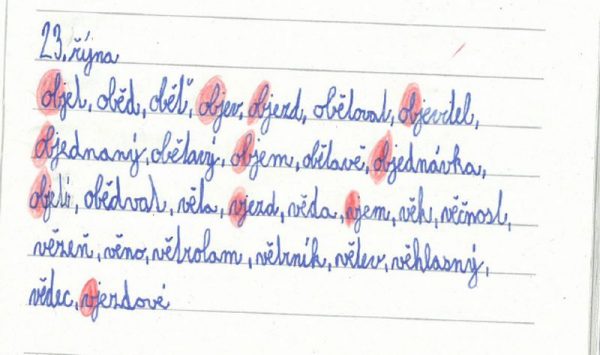 23. října
objel, oběd, oběť, objev, objezd, obětoval, objevitel,
objednaný, obětavý, objem, obětavě, objednávka,
objetí, obědval, věta, vjezd, věda, vjem, věk, věčnost,
vězeň, věno, větrolam, větrník, větev, věhlasný,
vědec, vjezdové